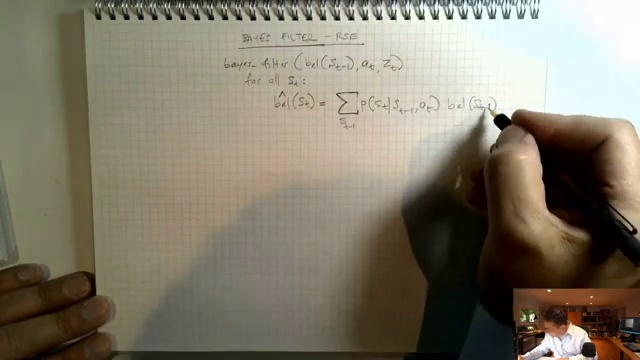 BAYES FILTER - RSE
bayes-filter (bel(S_{t-1}), a_t, z_t)
for all S_t:
b̂el(S_t) = ∑_{S_{t-1}} p(S_t | S_{t-1}, a_t) bel(S_{t-1})